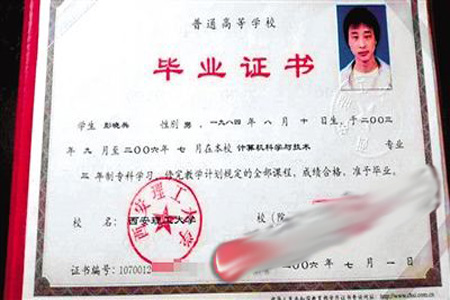 普通高等学校
毕业证书
学生 彭晓兵 性别 男，一九八四年 八 月 十 日生，于二〇〇三
年 九 月至二〇〇六年 七 月在本校 计算机科学与技术 专业
三 年制专科学习，修完教学计划规定的全部课程，成绩合格，准予毕业。
校 名： 西安理工大学 校（院
西安理工大学
证书编号：1070012
二〇〇六年 七 月 一 日